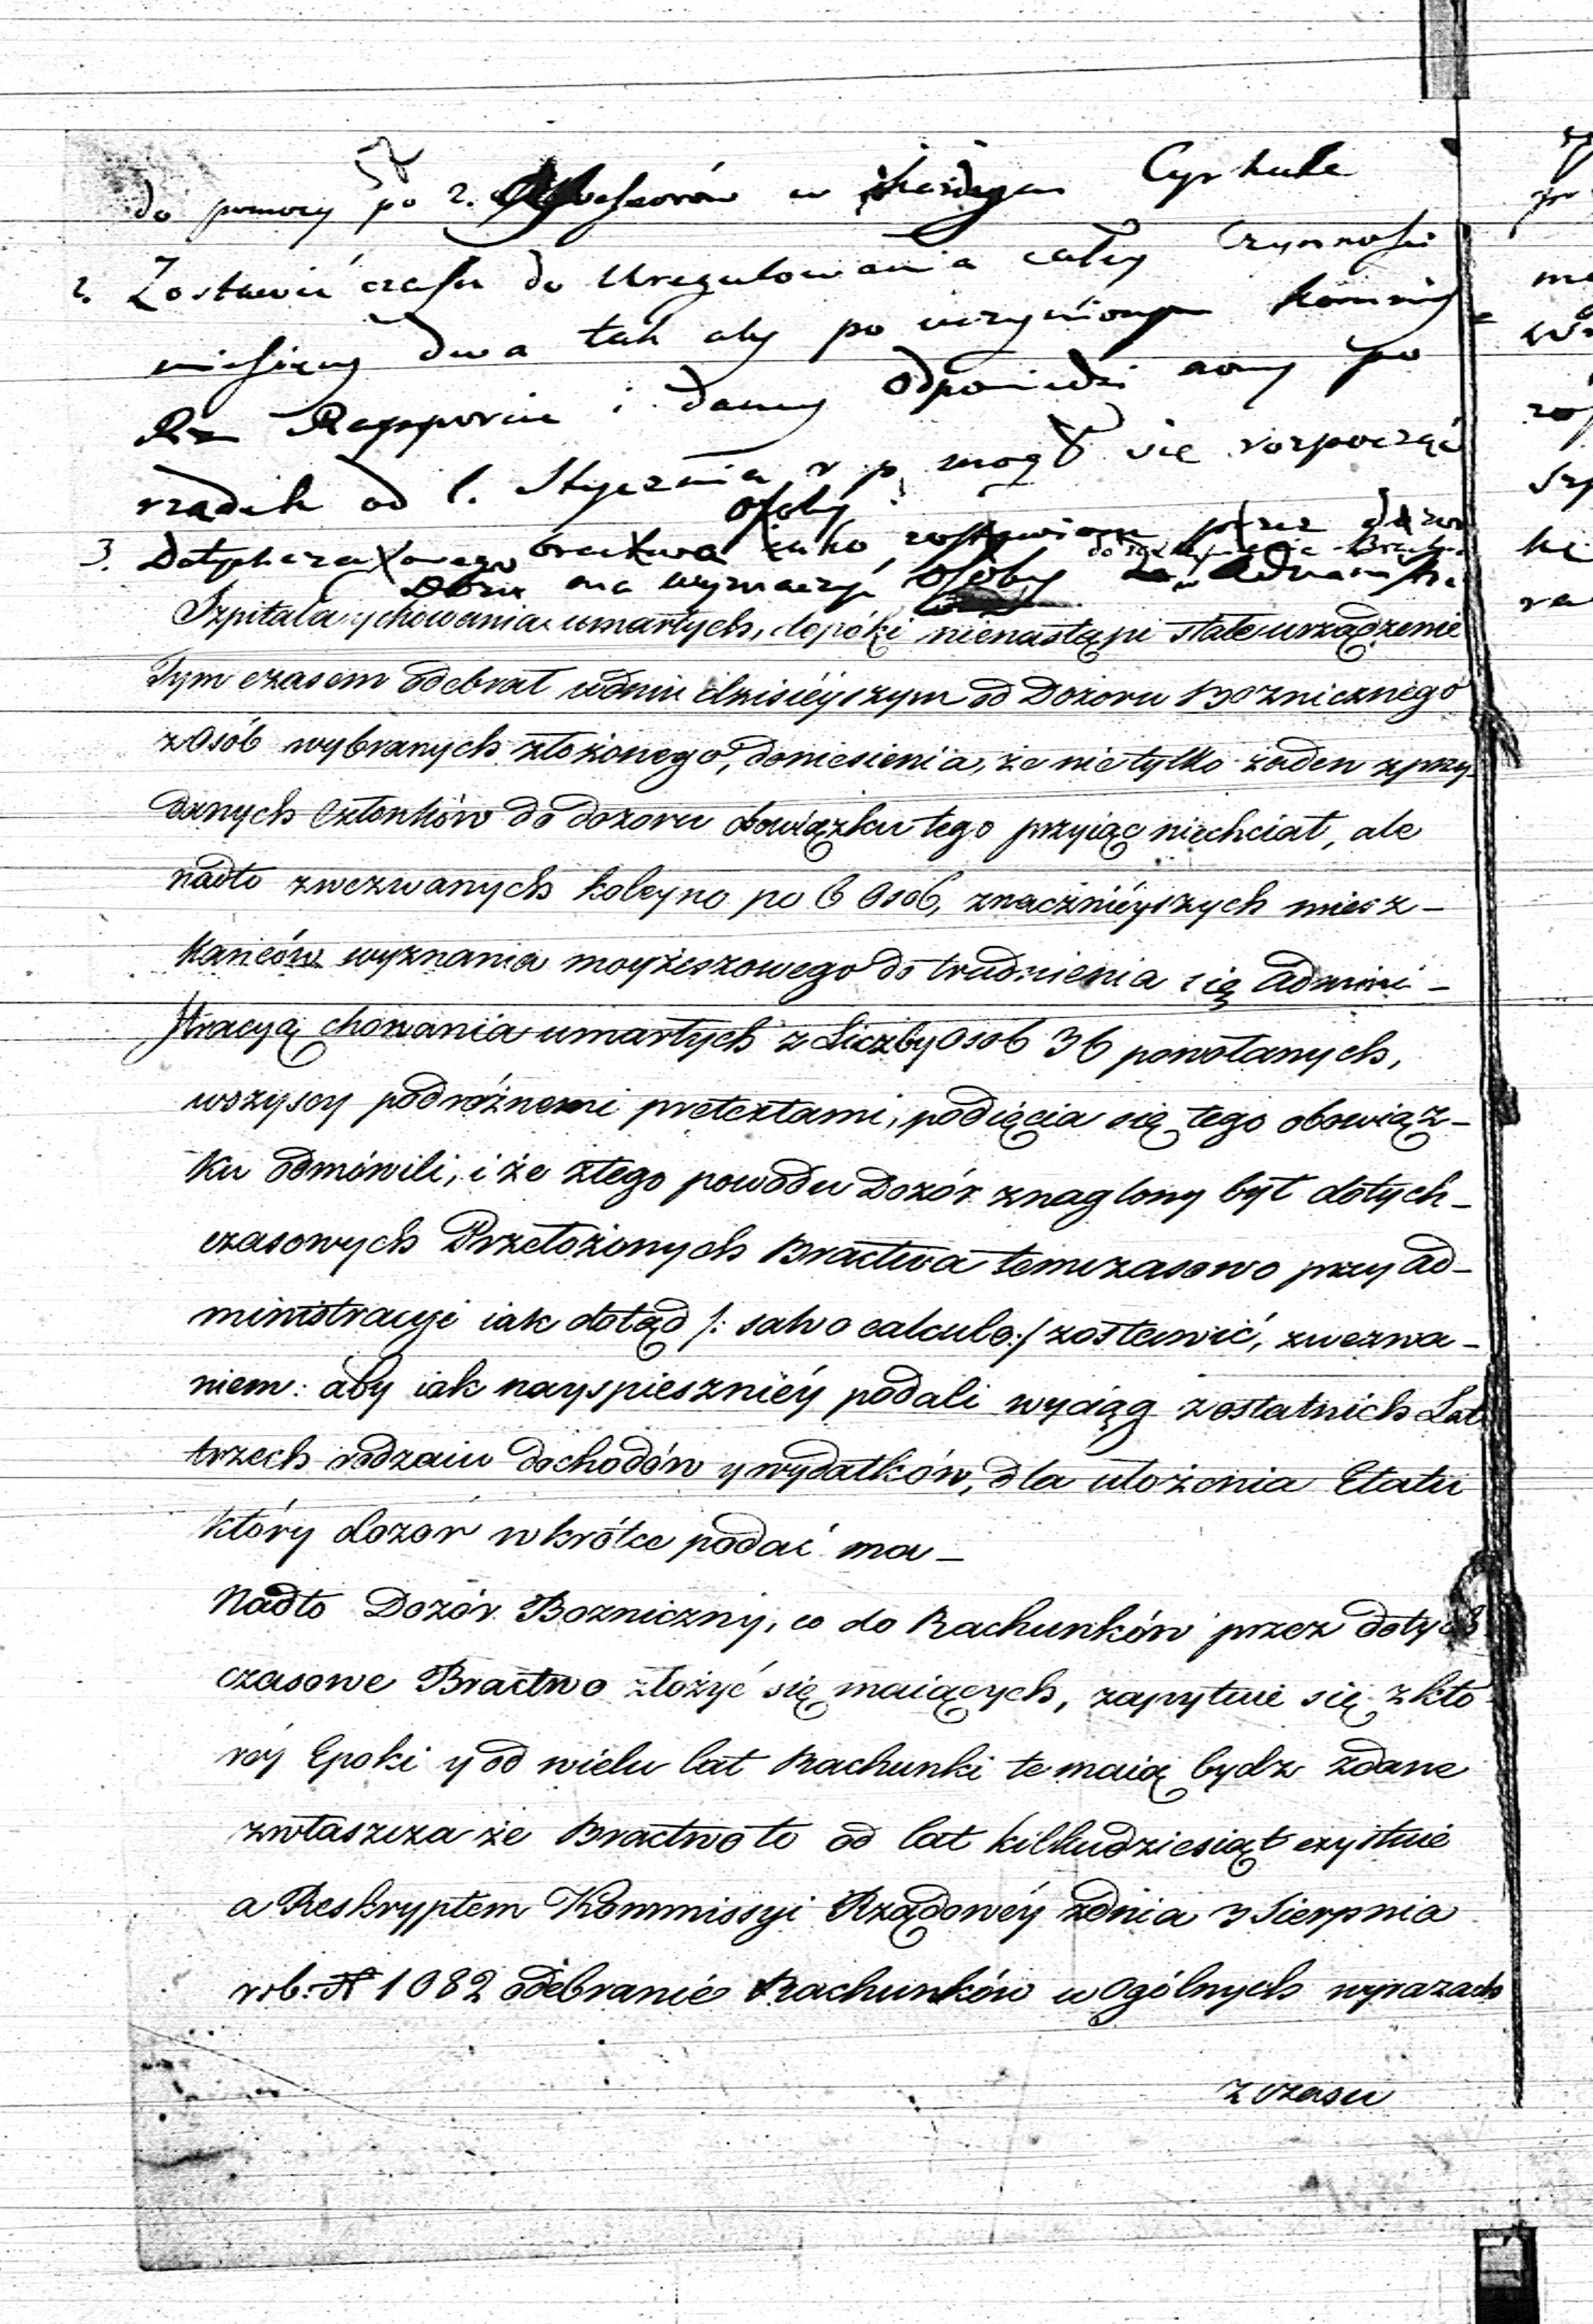 do pomocy po 2. w każdym Cyrkule
2. Zostawić czasu do Uregulowania całej Czynności
miesięcy dwa tak aby po uczynionym Kommis
Rz Rapporcie i daney odpowiedzi nowy po
rządek od 1. Stycznia r p mogł się rozpocząć
osoby
3. Dotychczasowego bractwa iako zostawione przez dozor
Dozor ma wyznaczyć osoby
Szpitala y chowania umarłych, dopóki nienastąpi stałe urządzenie
Tym czasem odebrał w dniu dzisieyszym od Dozoru Boznicznego
z Osób wybranych złożonego, doniesienia, że nietylko żaden z przy-
danych Członków do dozoru obowiązku tego przyiąc niechciał, ale
nadto zwezwanych koleyno po 6 Osob, znacznieyszych miesz-
kańców wyznania moyżeszowego do trudnienia się Admini-
stracyą chowania umarłych z Liczby Osob 36 powołanych,
wszyscy podróżnemi pretextami, podięcia się tego obowiąz-
ku odmówili, i że ztego powodu Dozór znaglony był dotych-
czasowych Przełożonych Bractwa temczasowo przy Ad-
ministracyi iak dotąd /: salvo calculo :/ zostawić, zwezwa-
niem: aby iak nayspieszniéy podali wyciąg z ostatnich Lat
trzech rodzaiu dochodów y wydatków, dla ułożenia Etatu
który dozór wkrótce podać ma-
Nadto Dozór Bozniczny, co do Rachunków przez dotych
czasowe Bractwo złożyć się maiących, zapytuie się z któ
réy Epoki y od wielu lat Rachunki te maią bydz zdane
zwłaszcza że Bractwo to od lat kilkudziesiąt exystuie
a Reskryptem Kommissyi Rządowéy zdnia 3 Sierpnia
r.b. N 1082 odebranie Rachunków w Ogólnych wyrazach
z czasu